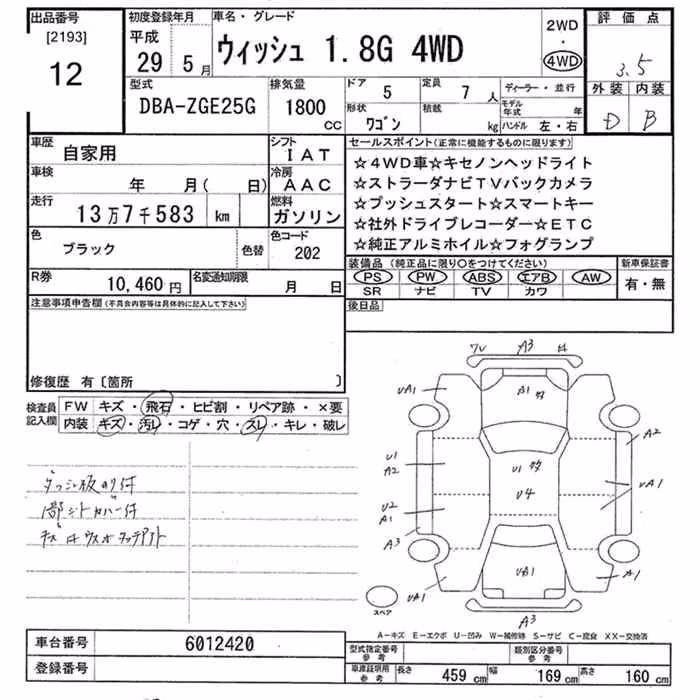 出品番号
[2193]
12
初度登録年月
平成
29 5月
車名・グレード
ウィッシュ 1.8G 4WD
2WD
・
4WD
評価点
3.5
外装 内装
D B
型式
DBA-ZGE25G
排気量
1800
CC
ドア
5
定員
7 人
形状
ワゴン
積載
kg
ディーラー・並行
モデル年式 年
ハンドル 左・右
車歴
自家用
シフト
IAT
車検
年 月( 日)
冷房
AAC
走行
13万7千583 km
燃料
ガソリン
色
ブラック
色替
色コード
202
R券
10,460円
名変通知期限
月 日
セールスポイント(正常に機能するものに限ります)
☆4WD車☆キセノンヘッドライト
☆ストラーダナビTVバックカメラ
☆プッシュスタート☆スマートキー
☆社外ドライブレコーダー☆ETC
☆純正アルミホイル☆フォグランプ
装備品(純正品に限り○をつけてください)
PS PW ABS エアB AW
SR ナビ TV カワ
新車保証書
有・無
後日品
注意事項申告欄(不具合内容等は具体的に記入して下さい)
修復歴 有〔箇所 〕
検査員記入欄
FW キズ・飛石・ヒビ割・リペア跡・×要
内装 キズ・汚レ・コゲ・穴・スレ・キレ・破レ
A3
UA1
A1
A2
U1
A2
U1
U4
UA1
U2
A1
A3
UA1
UA1
A1
A3
スペア
A－キズ E－エクボ U－凹み W－補修跡 S－サビ C－腐食 XX－交換済
車台番号
6012420
登録番号
型式指定番号
参考
類別区分番号
参考
車庫証明用
参考
長さ 459 cm 幅 169 cm 高さ 160 cm